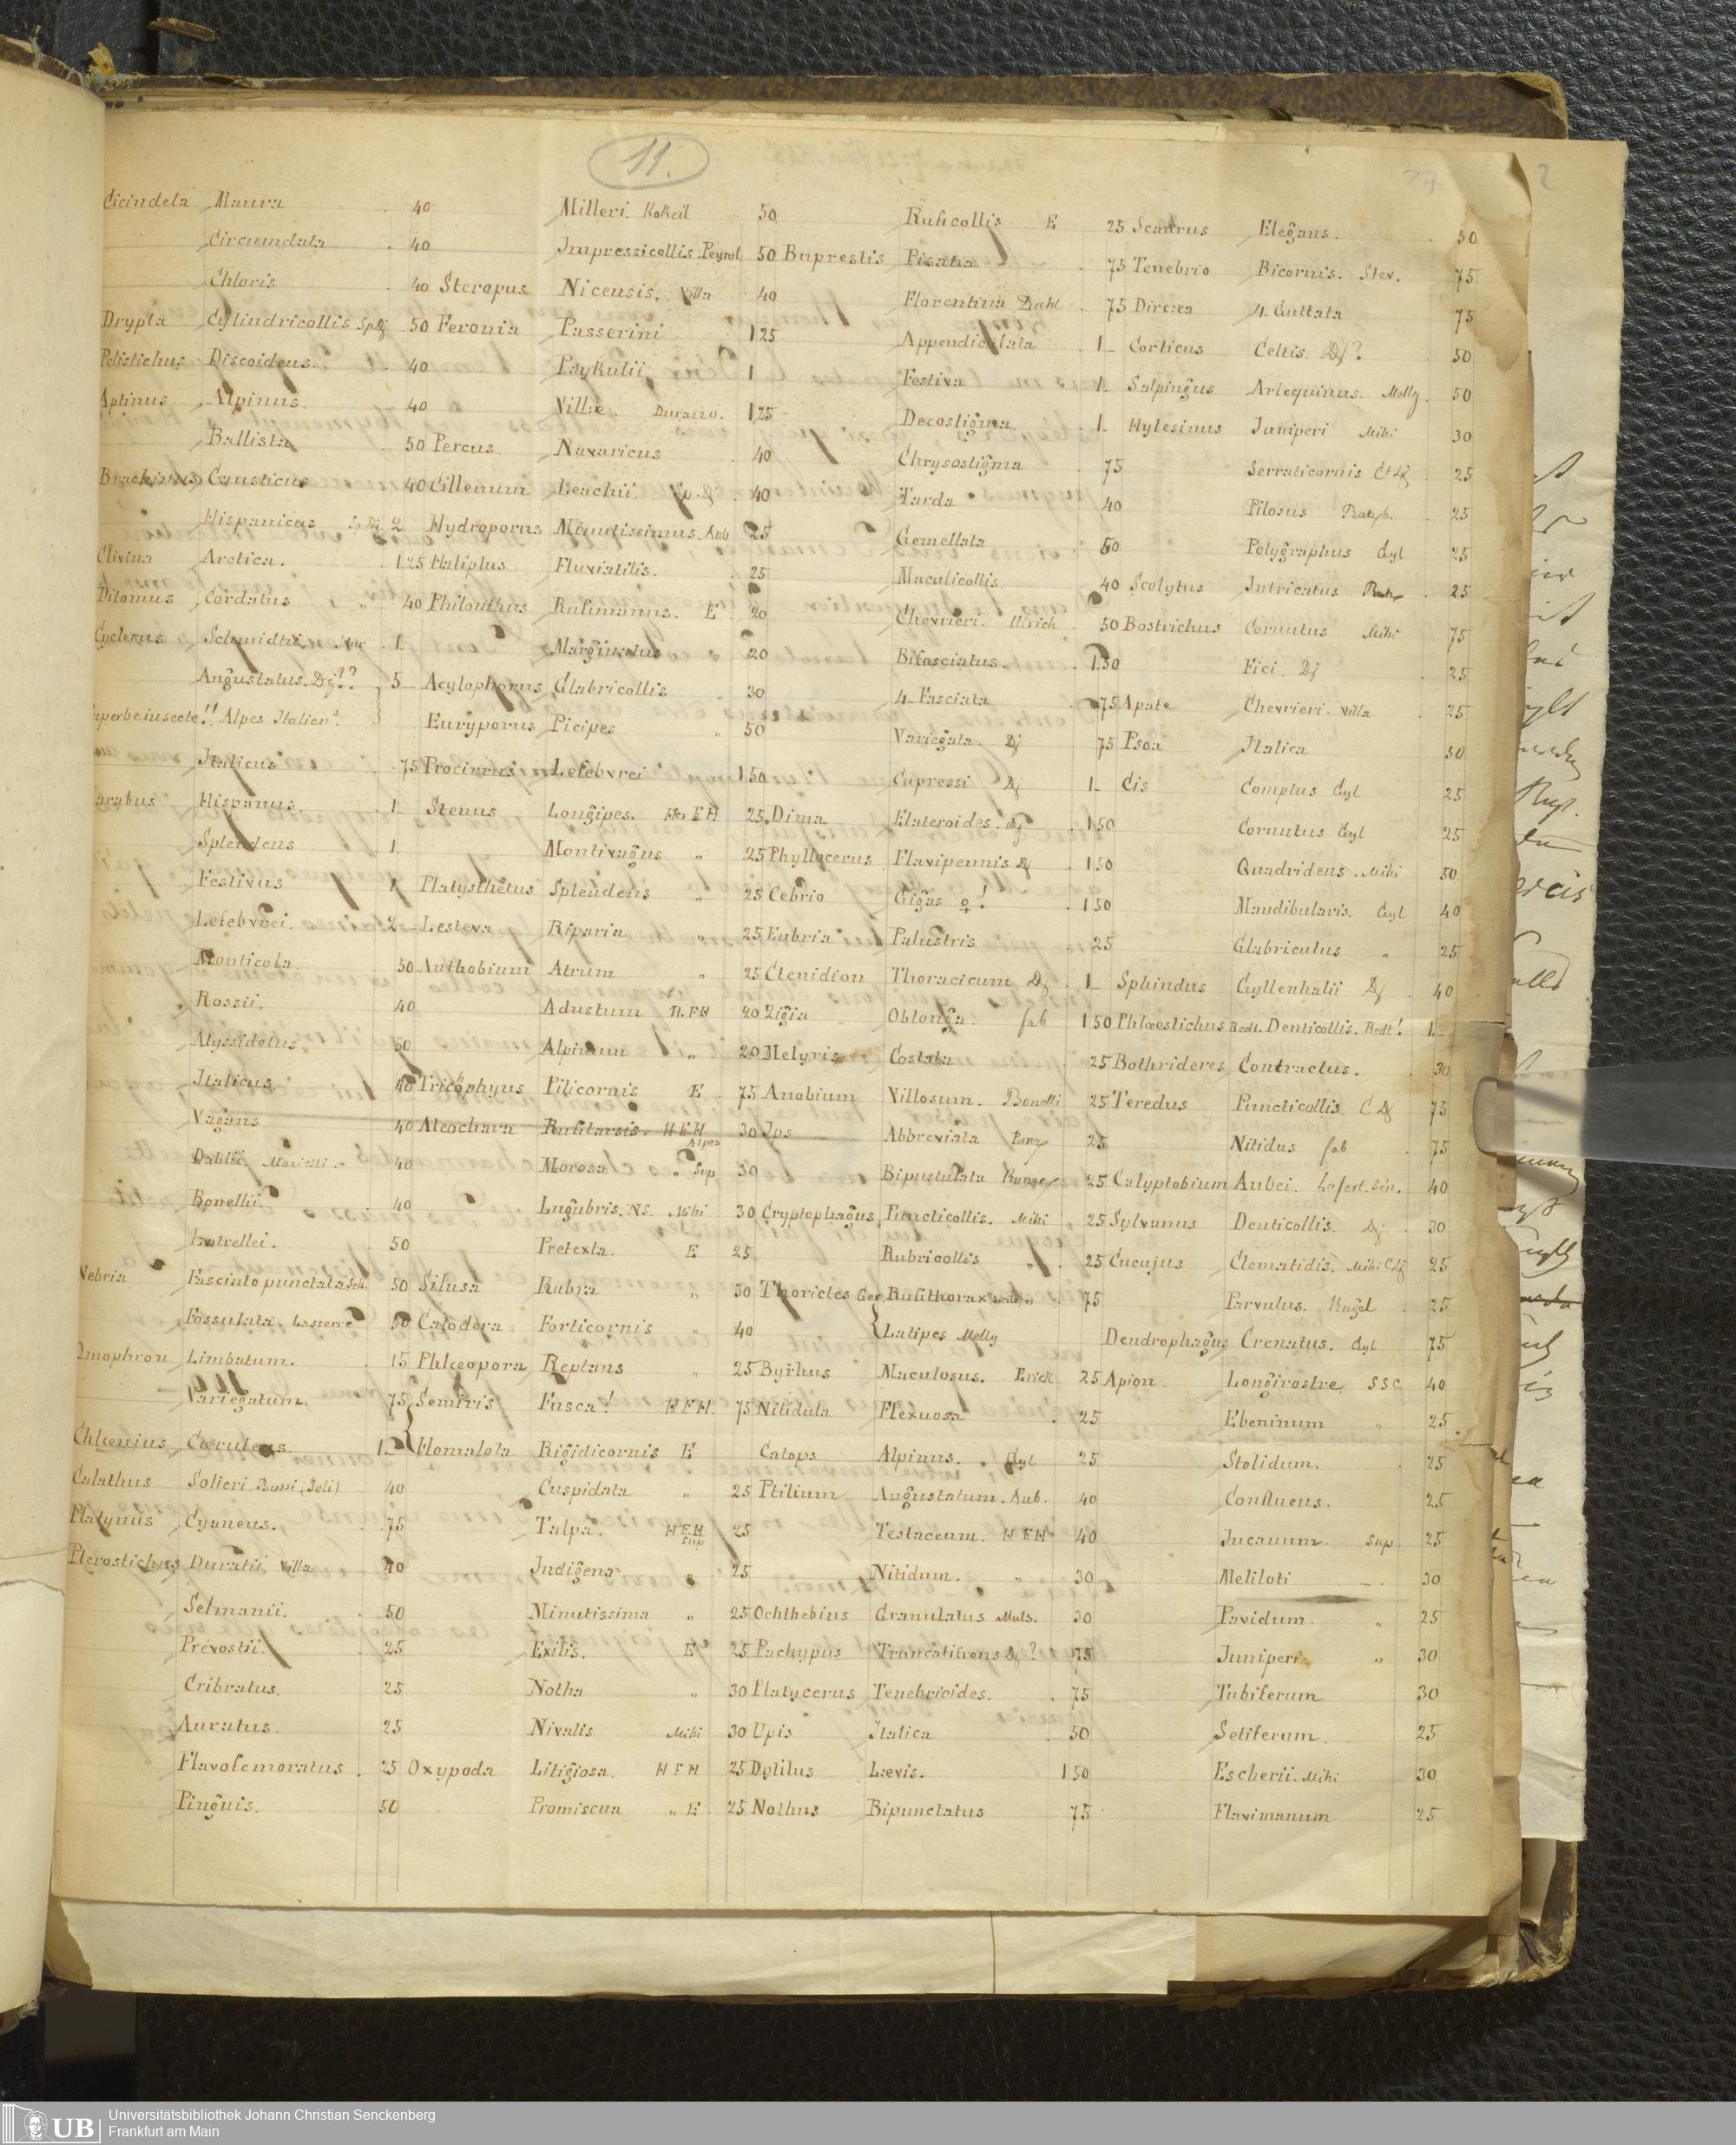 11.
Cicindela Maura 40
Circumdata 40
Chloris 40
Drypta Cylindricollis Sp Dj 50
Polistichus Discoideus. 40
Aptinus Alpinus. 40
Ballista 50
Brachinus Causticus 40
Hispanicus Sp Dj 2
Clivina Arctica. 1.25
Ditomus Cordatus " 40
Cychrus Schmidtii 1.
Angustatus. Dj?? 5
superbe insecte!! Alpes Italien
Italicus 75
Carabus Hispanus. 1
Splendens 1
Festivus 1
Lefebvrei. 2
Monticola 50
Rossii. 40
Alyssidotus. 50
Italicus 40
Vagans 40
Dahlii. 40
Bonellii. 40
Latrellei. 50
Nebria Fascinto punctata 50
Fossulata. Lasserre 50
Omophron Limbatum. 15
Variegatum. 75
Chlœnius Cœruleus. 1
Calathus Solieri Bassi (Joli) 40
Platynus Cyaneus. 75
Pterostichus Duratii. Villa 40
Selmanii. 50
Prévostii. 25
Cribratus. 25
Auratus. 25
Flavofemoratus 25
Pinguis. 50
Milleri. Kokeil 50
Impressicollis. Peyrol 50
Steropus Nicensis. Villa 40
Feronia Passerini 1 25
Paykulii 1
Villæ. Durazzo. 1 25
Percus Navaricus 40
Cillenum Leachii. Sp. Dj 40
Hydroporus Minutissimus. Aub 25
Haliplus Fluviatilis. 25
Philonthus Rufimanus. E 20
Marginatus " 20
Acylophorus Glabricollis " 30
Euryporus Picipes " 50
Procirrus Lefebvrei 1 50
Stenus Longipes. Her E H 25
Montivagus " 25
Platysthetus Splendens " 25
Lesteva Riparia " 25
Anthobium Atrum " 25
Adustum H. E H 20
Alpinum " 20
Tricophyus Pilicornis E 75
Aleochara Rufitarsis. H E H 30
Morosa " Alpes Sup 30
Lugubris. NS. Mihi 30
Pretexta. E 25
Silusa Rubra " 30
Calodera Forticornis " 40
Phlœopora Reptans " 25
Semiris Fusca! H E H. 75
Homalota Rigidicornis E
Cuspidata " 25
Talpa. H E H Sup 25
Indigena " 25
Minutissima " 25
Exilis. E 25
Notha " 30
Nivalis Mihi 30
Oxypoda Litigiosa. H E H 25
Promiscua " E 25
Ruficollis E 25
Buprestis Pisana 75
Florentina Dahl 75
Appendiculata 1
Festiva 1
Decostigma 1
Chrysostigma 75
Tarda 40
Gemellata 50
Maculicollis 40
Chevrieri. Ullrich 50
Bifasciatus. 1.50
4-Fasciata 75
Variegata. Dj 75
Cupressi Dj 1
Dima Elateroides. Dj 1 50
Phyllocerus Flavipennis Dj 1 50
Cebrio Gigas ♀! 1 50
Eubria Palustris 25
Ctenidion Thoracicum Dj 1
Zigia Oblonga. fab 1 50
Melyris Costata 25
Anobium Villosum. Bonelli 25
Ips Abbreviata Panz 25
Bipustulata 25
Cryptophagus Puncticollis. Mihi 25
Rubricollis " 25
Thorictes Ger Rufithorax 75
Latipes Melly
Byrhus Maculosus. Erick 25
Nitidula Flexuosa 25
Catops Alpinus. Gyl 25
Ptilium Angustatum. Aub. 40
Testaceum. H E H 40
Nitidum. " 30
Ochthebius Granulatus Muls. 30
Pachypus Truncatifrons Dj? 75
Platycerus Tenebrioides. 75
Upis Italica 50
Dytilus Lævis. 1 50
Nothus Bipunctatus 75
Scaurus Elegans. 50
Tenebrio Bicornis. Stev. 75
Dircæa 4-Guttata 75
Corticus Celtis. Dj? 50
Salpingus Arlequinus. Melly 50
Hylesinus Juniperi Mihi 30
Serraticornis Ct Dj 25
Pilosus Ratzb. 25
Polygraphus Gyl 25
Scolytus Intricatus Ratz 25
Bostrichus Cornutus Mihi 75
Fici. Dj 25
Apate Chevrieri. Villa 25
Psoa Italica 50
Cis Comptus Gyl 25
Cornutus Gyl 25
Quadridens. Mihi 50
Mandibularis. Gyl 40
Glabriculus " 25
Sphindus Gyllenhalii Dj 40
Phlœstichus Redt. Denticollis. Redt! 1
Bothrideres Contractus. 30
Teredus Puncticollis. C Dj 75
Nitidus fab 75
Calyptobium Aubei. Lafert. Sén. 40
Sylvanus Denticollis. Dj 30
Cucujus Clematidis. Mihi C Dj 25
Parvulus. Kugel 25
Dendrophagus Crenatus. Gyl 75
Apion Longirostre. SSC 40
Ebeninum " 25
Stolidum. 25
Confluens. 25
Incanum. Sup 25
Meliloti 30
Pavidum. " 25
Juniperi " 30
Tubiferum 30
Setiferum. 25
Escherii. Mihi 30
Flavimanum 25
UB Universitätsbibliothek Johann Christian Senckenberg
Frankfurt am Main